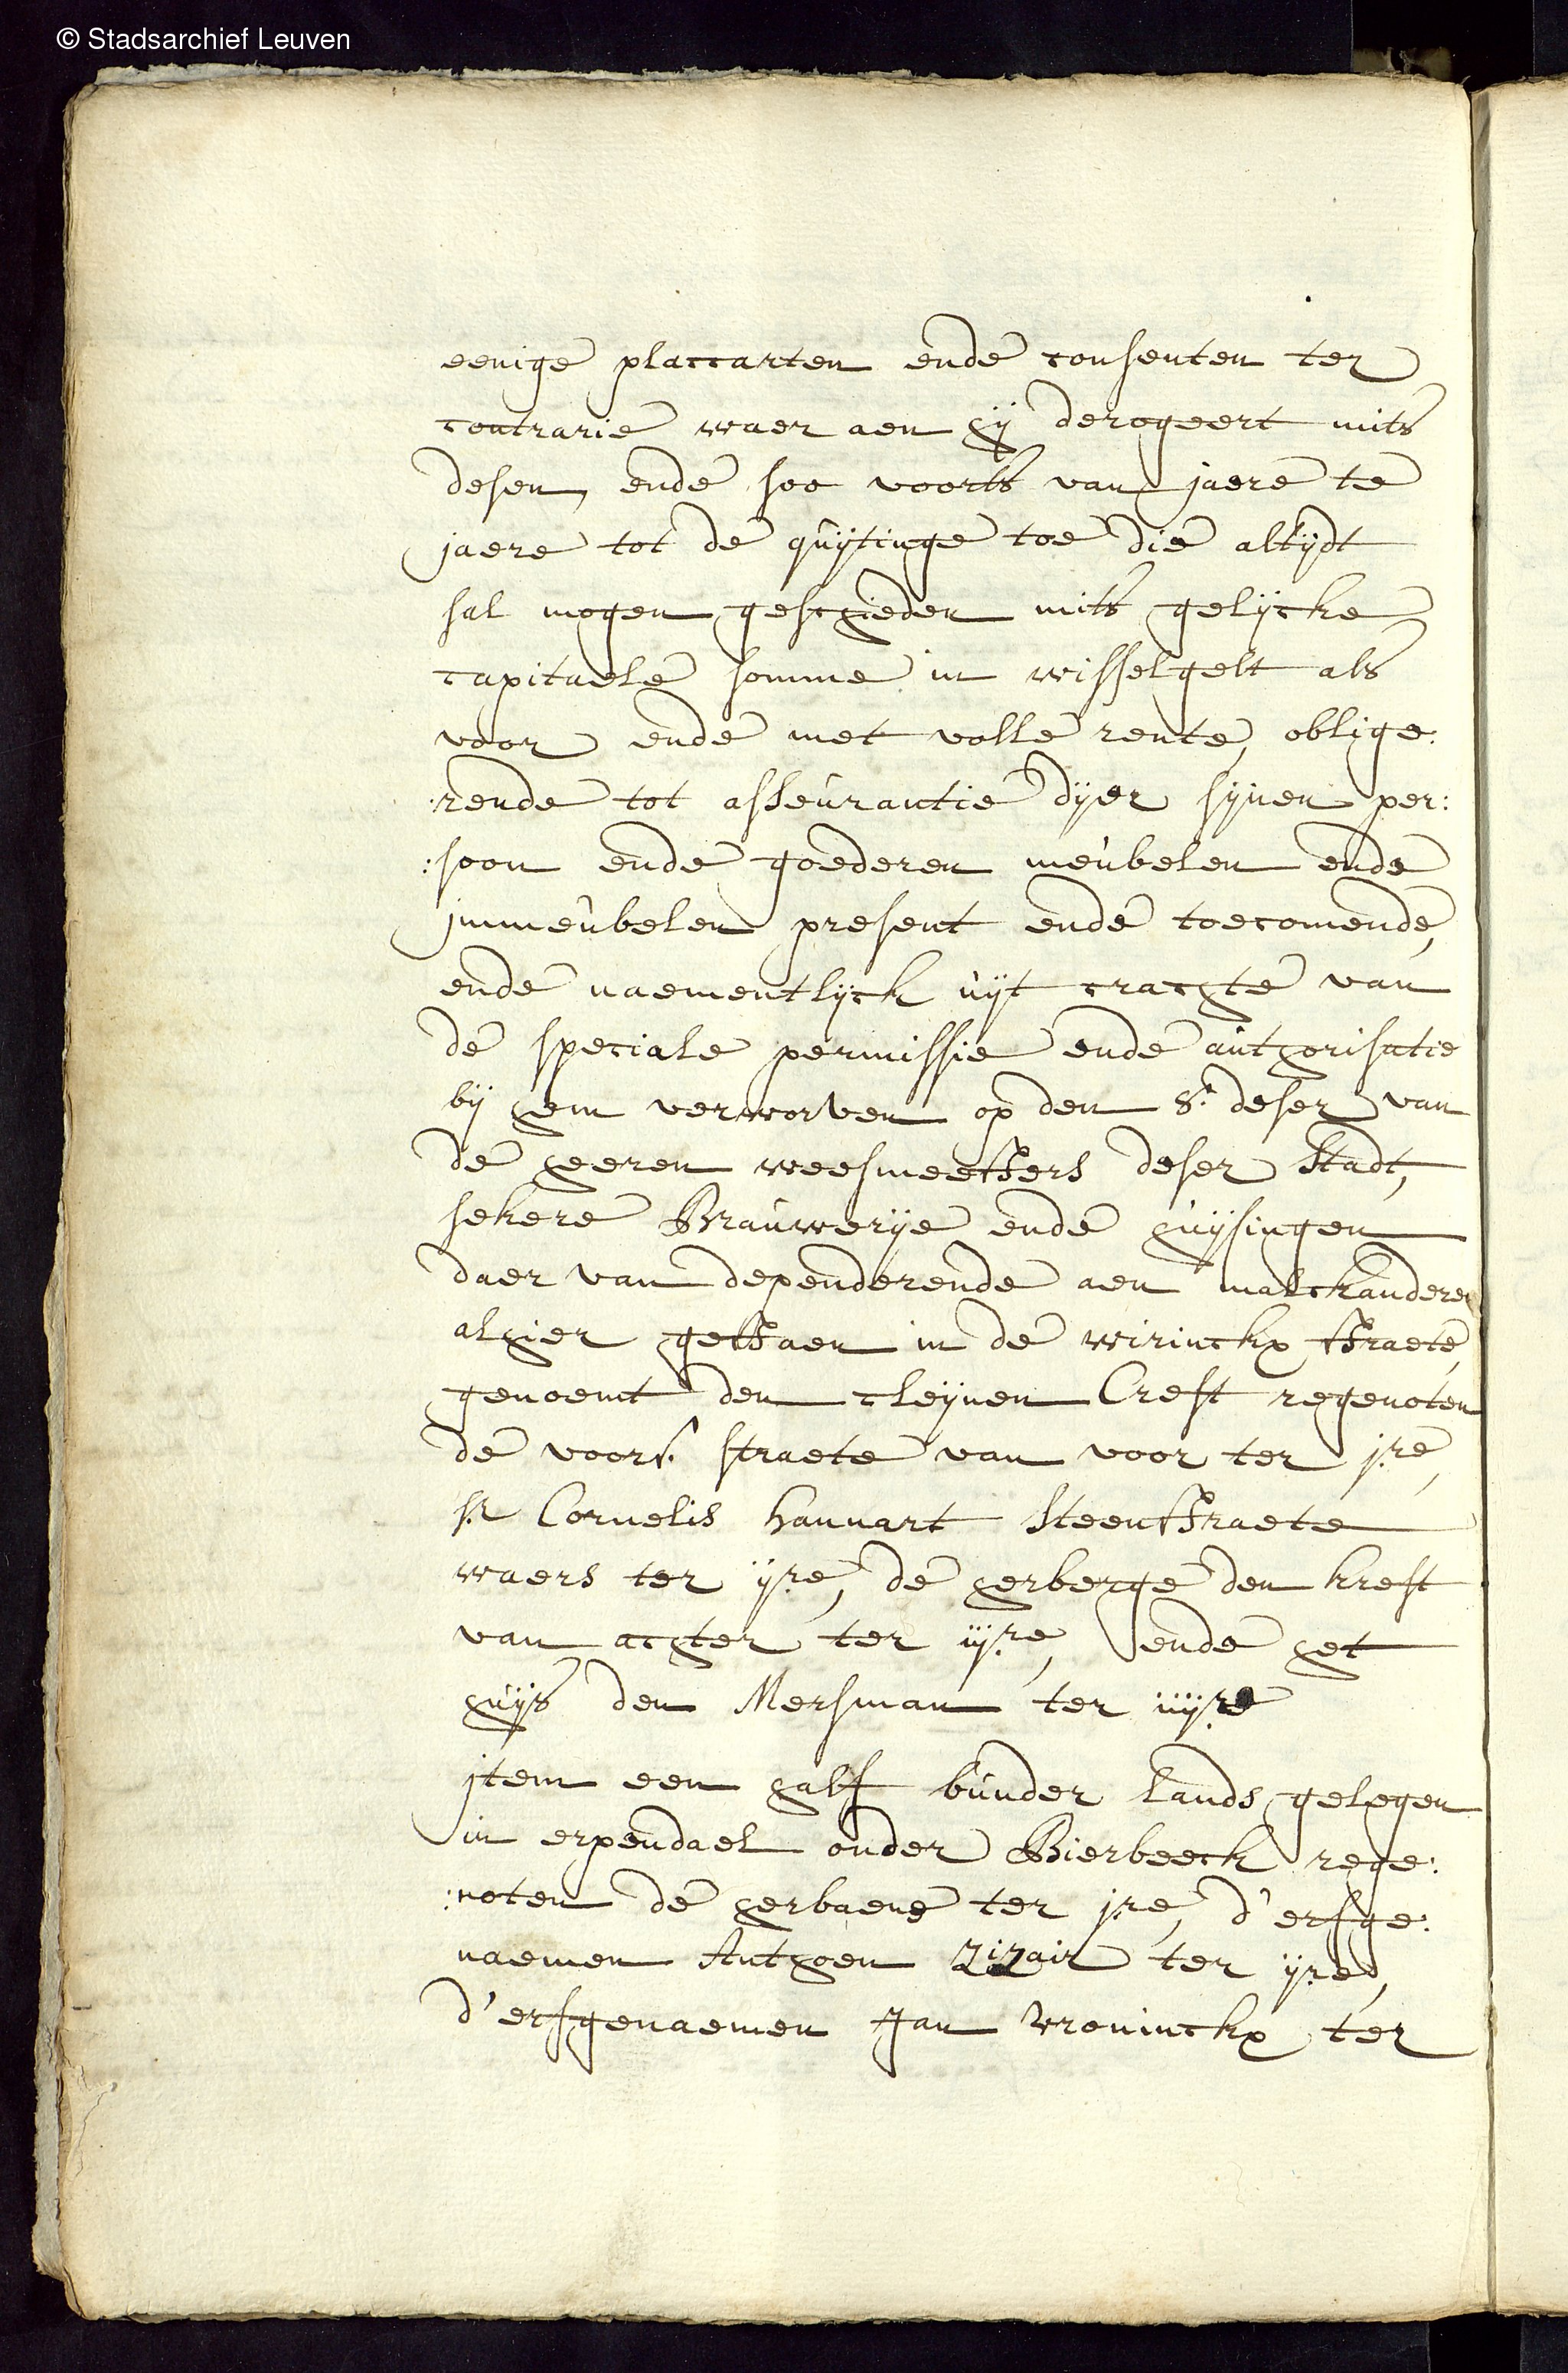 © Stadsarchief Leuven
eenige placcarten ende consenten ter
contrarie waer aen hij derogeert mits
desen, ende soo voorts van jaere te
jaere tot de quijtinge toe die altijdt
sal mogen geschieden mits gelijcke
capitaele somme in wisselgelt als
voor ende met volle rente, oblige:
:rende tot asseurantie dijer sijnen per:
:soon ende goederen meubelen ende
immeubelen present ende toecomende,
ende naementlijck uijt crachte van
de speciale permissie ende authorisatie
bij hem verworven op den 8.e deser van
de heeren weesmeesters deser stadt,
sekere Brauwerije ende huijsingen
daer van dependerende aen malckanderen
alhier gestaen in de wirinckx straete,
genoemt den cleijnen Creft regenoten
de voors. straete van voor ter j.re,
sr. Cornelis hannart steenstraete
waers ter ij.re, de herberge den kreft
van achter ter iij.re, ende het
huijs den Mersman ter iiij.re
jtem een half bunder lands gelegen
in erpendael onder Bierbeeck rege:
:noten de herbaene ter j.re, d'erfge:
naemen Anthoen Zizair ter ij.re,
d'erfgenaemen Jan Vroninckx ter